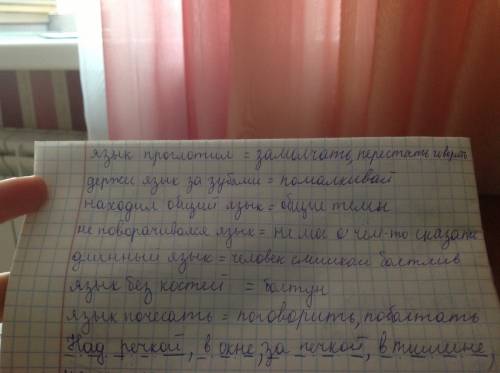 язык проглотил = замолчать, перестать говорить
держи язык за зубами = помалкивай
находил общий язык = общие темы
не поворачивался язык = не мог о чём-то сказать
длинный язык = человек слишком болтлив
язык без костей = болтун
язык почесать = поговорить, поболтать
Над речкой, в окне, за печкой, в тишине,